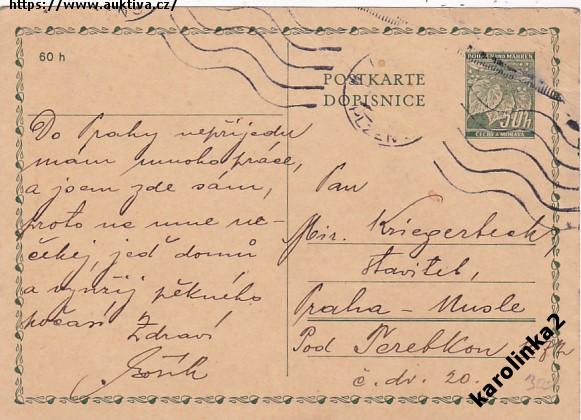 https://www.auktiva.cz/
60 h
POSTKARTE
DOPISNICE
BÖHMEN UND MÄHREN
50h
ČECHY A MORAVA
PLZEŇ
Do Prahy nepřijedu
mám mnoho práce,
a jsem zde sám,
proto na mne ne-
čekej, jeď domů
a využij pěkného
počasí Zdraví
Pan
Mir. Kriegerbeck,
stavitel,
Praha - Nusle
Pod Terebkou
č. dv. 20.
karolinka2